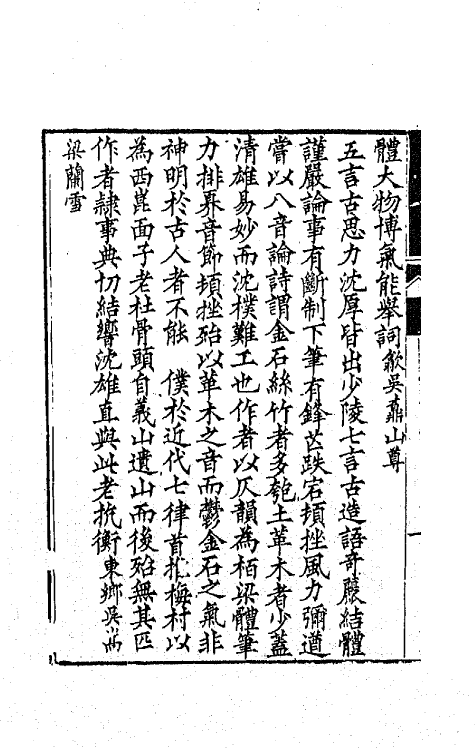 體大物博氣能舉詞 歙吳鼒山尊
五言古思力沈厚皆出少陵七言古造語奇麗結體
謹嚴論事有斷制下筆有鋒芒跌宕頓挫風力彌遒
嘗以八音論詩謂金石絲竹者多匏土革木者少蓋
清雄易妙而沈樸難工也作者以仄韻為栢梁體筆
力排奡音節頓挫殆以革木之音而鬱金石之氣非
神明於古人者不能 僕於近代七律首推梅村以
為西崑面子老杜骨頭自義山遺山而後殆無其匹
作者隸事典切結響沈雄直與此老抗衡 東鄉吳嵩
梁蘭雪